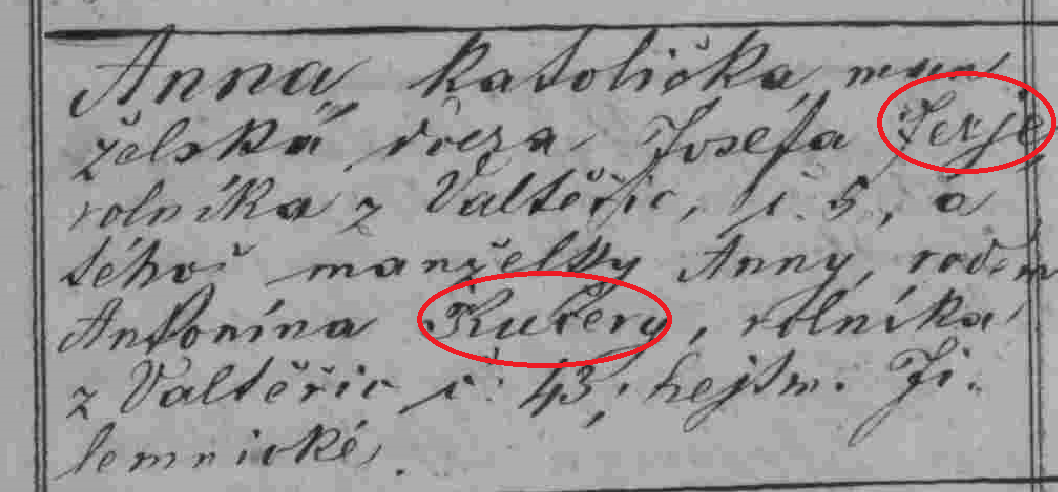 Anna katolička, man
želská dcera Josefa Jerje
rolníka z Valtěřic, č. 5, a
téhož manželky Anny, rodem
Antonína Kučery, rolníka
z Valtěřic č. 43, hejtm. Ji-
lemnické.